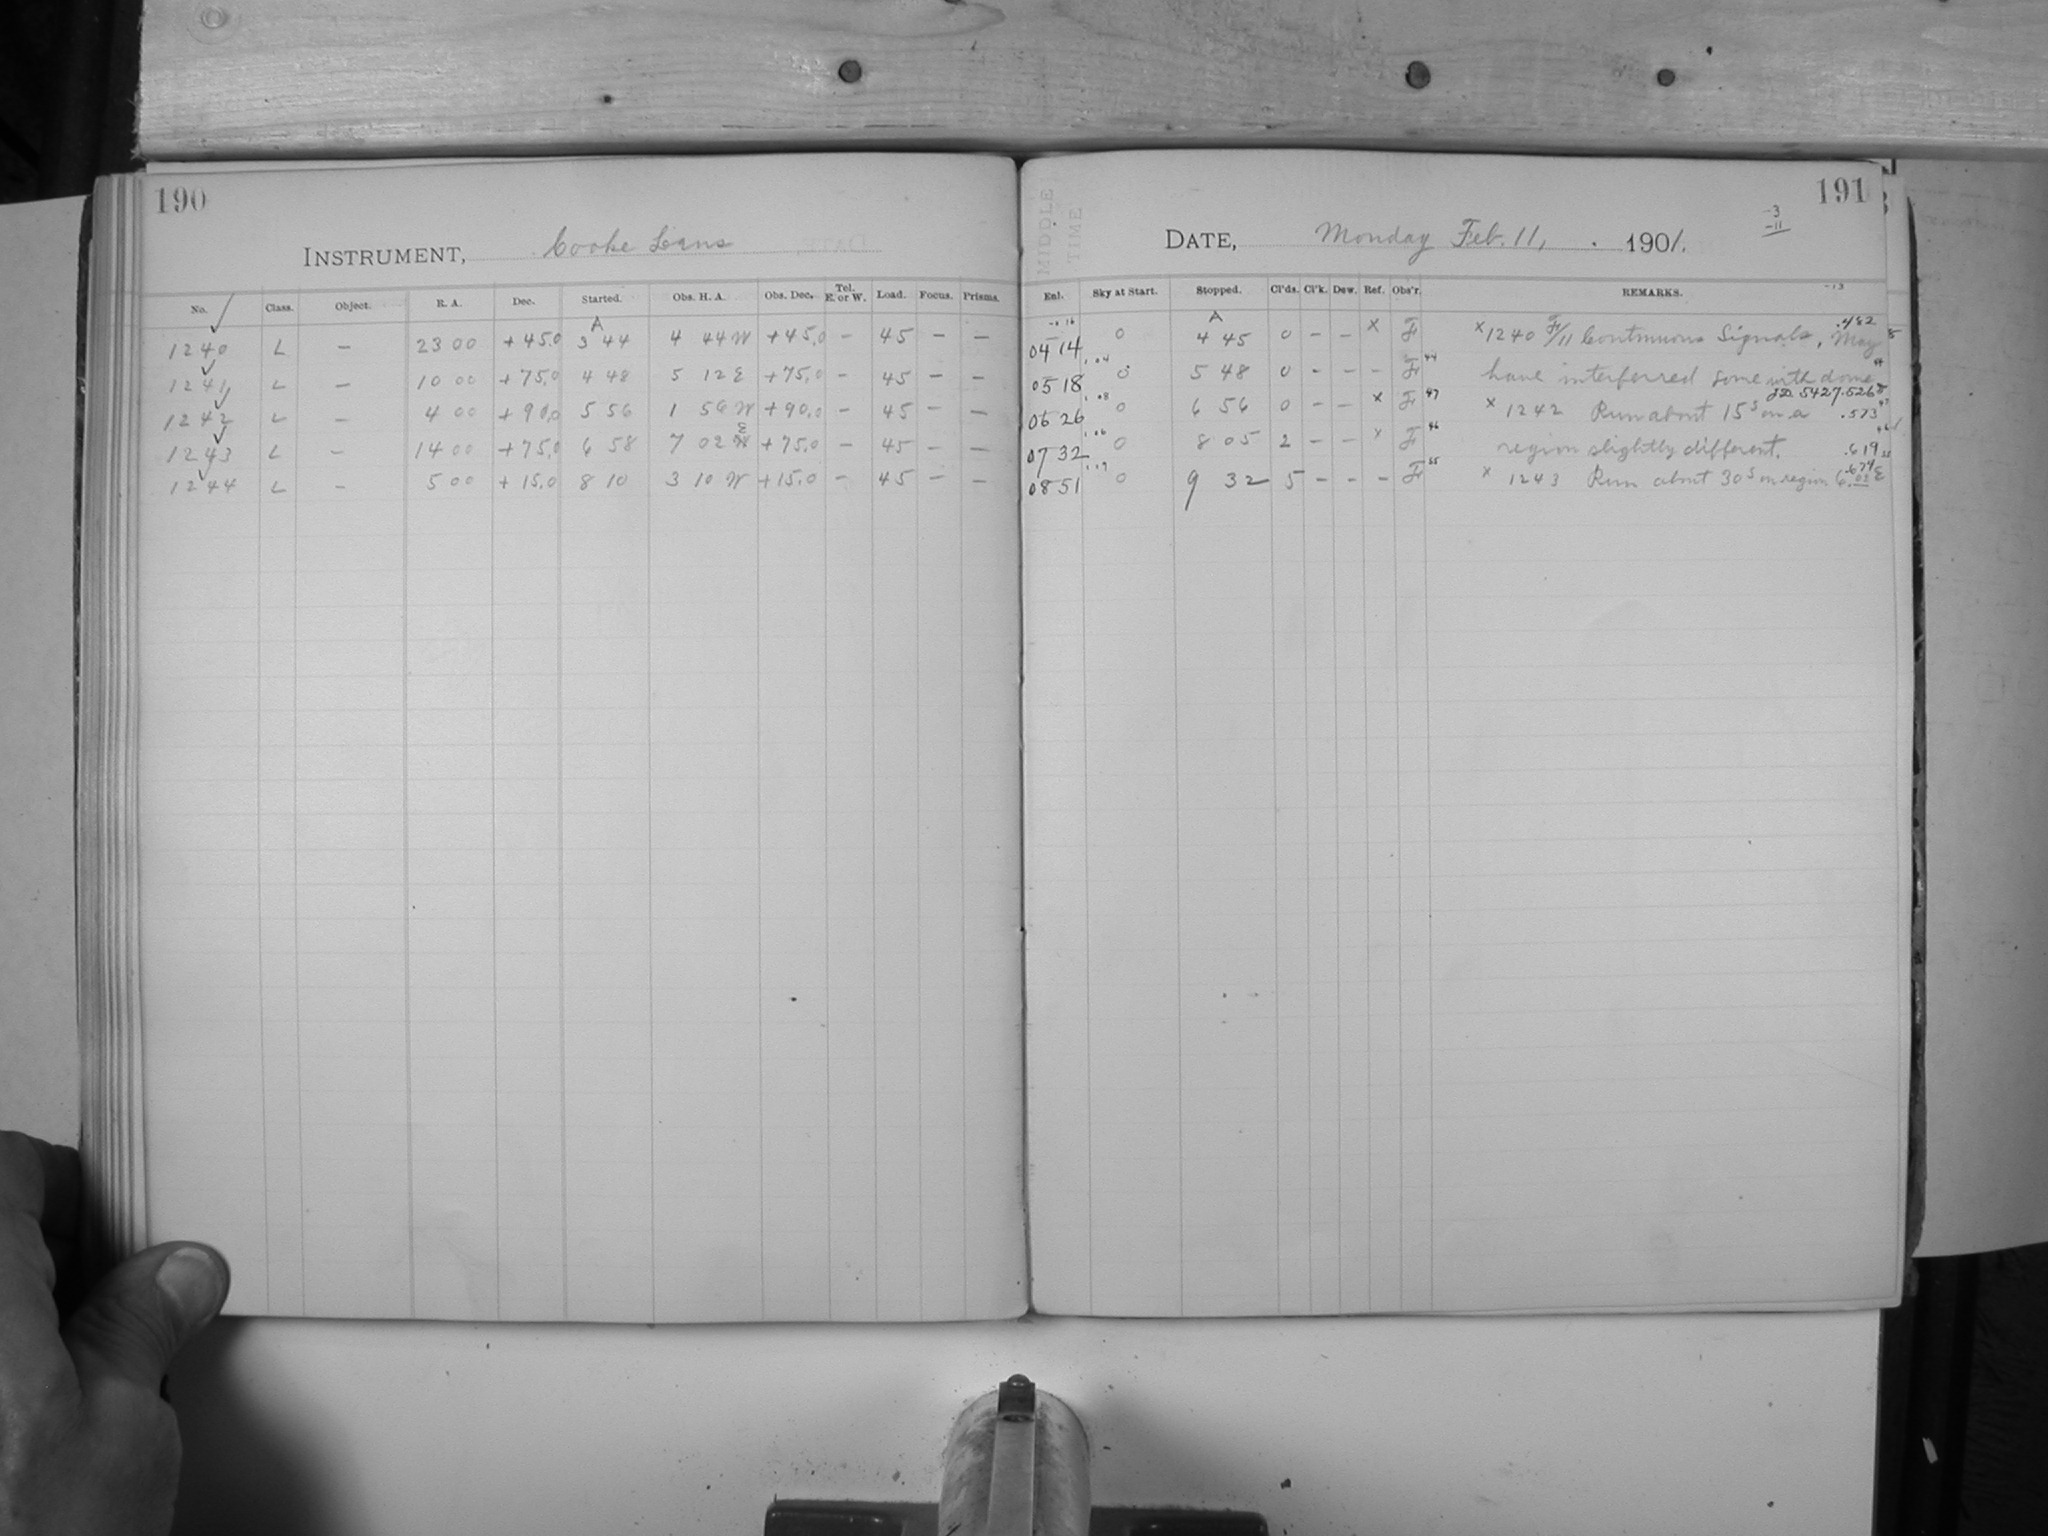 190
INSTRUMENT, Cooke Lens
No. Class. Object. R. A. Dec. Started. Obs. H. A. Obs. Dec. Tel. E. or W. Load. Focus. Prisms.
A
1240 L – 23 00 +45.0 3 44 4 44 W +45.0 – 45 – –
1241 L – 10 00 +75.0 4 48 5 12 E +75.0 – 45 – –
1242 L – 4 00 +90.0 5 56 1 56 W +90.0 – 45 – –
E
1243 L – 14 00 +75.0 6 58 7 02 W +75.0 – 45 – –
1244 L – 5 00 +15.0 8 10 3 10 W +15.0 – 45 – –
191
MIDDLE
TIME
-3
-11
DATE, Monday Feb. 11, 1901.
-13
Enl. Sky at Start. Stopped. Cl'ds. Cl'k. Dew. Ref. Obs'r. REMARKS.
A
04 14 0 4 45 0 – – x F x 1240 F/11 Continuous Signals, May .482
05 18 0 5 48 0 – – – F 44 have interferred some with dome
JD. 5427.526
06 26 0 6 56 0 – – x F 47 x 1242 Run about 15s on a .573
07 32 0 8 05 2 – – x F 46 region slightly different. .619
08 51 0 9 32 5 – – – F 55 x 1243 Run about 30s on region 6.02 E
.674